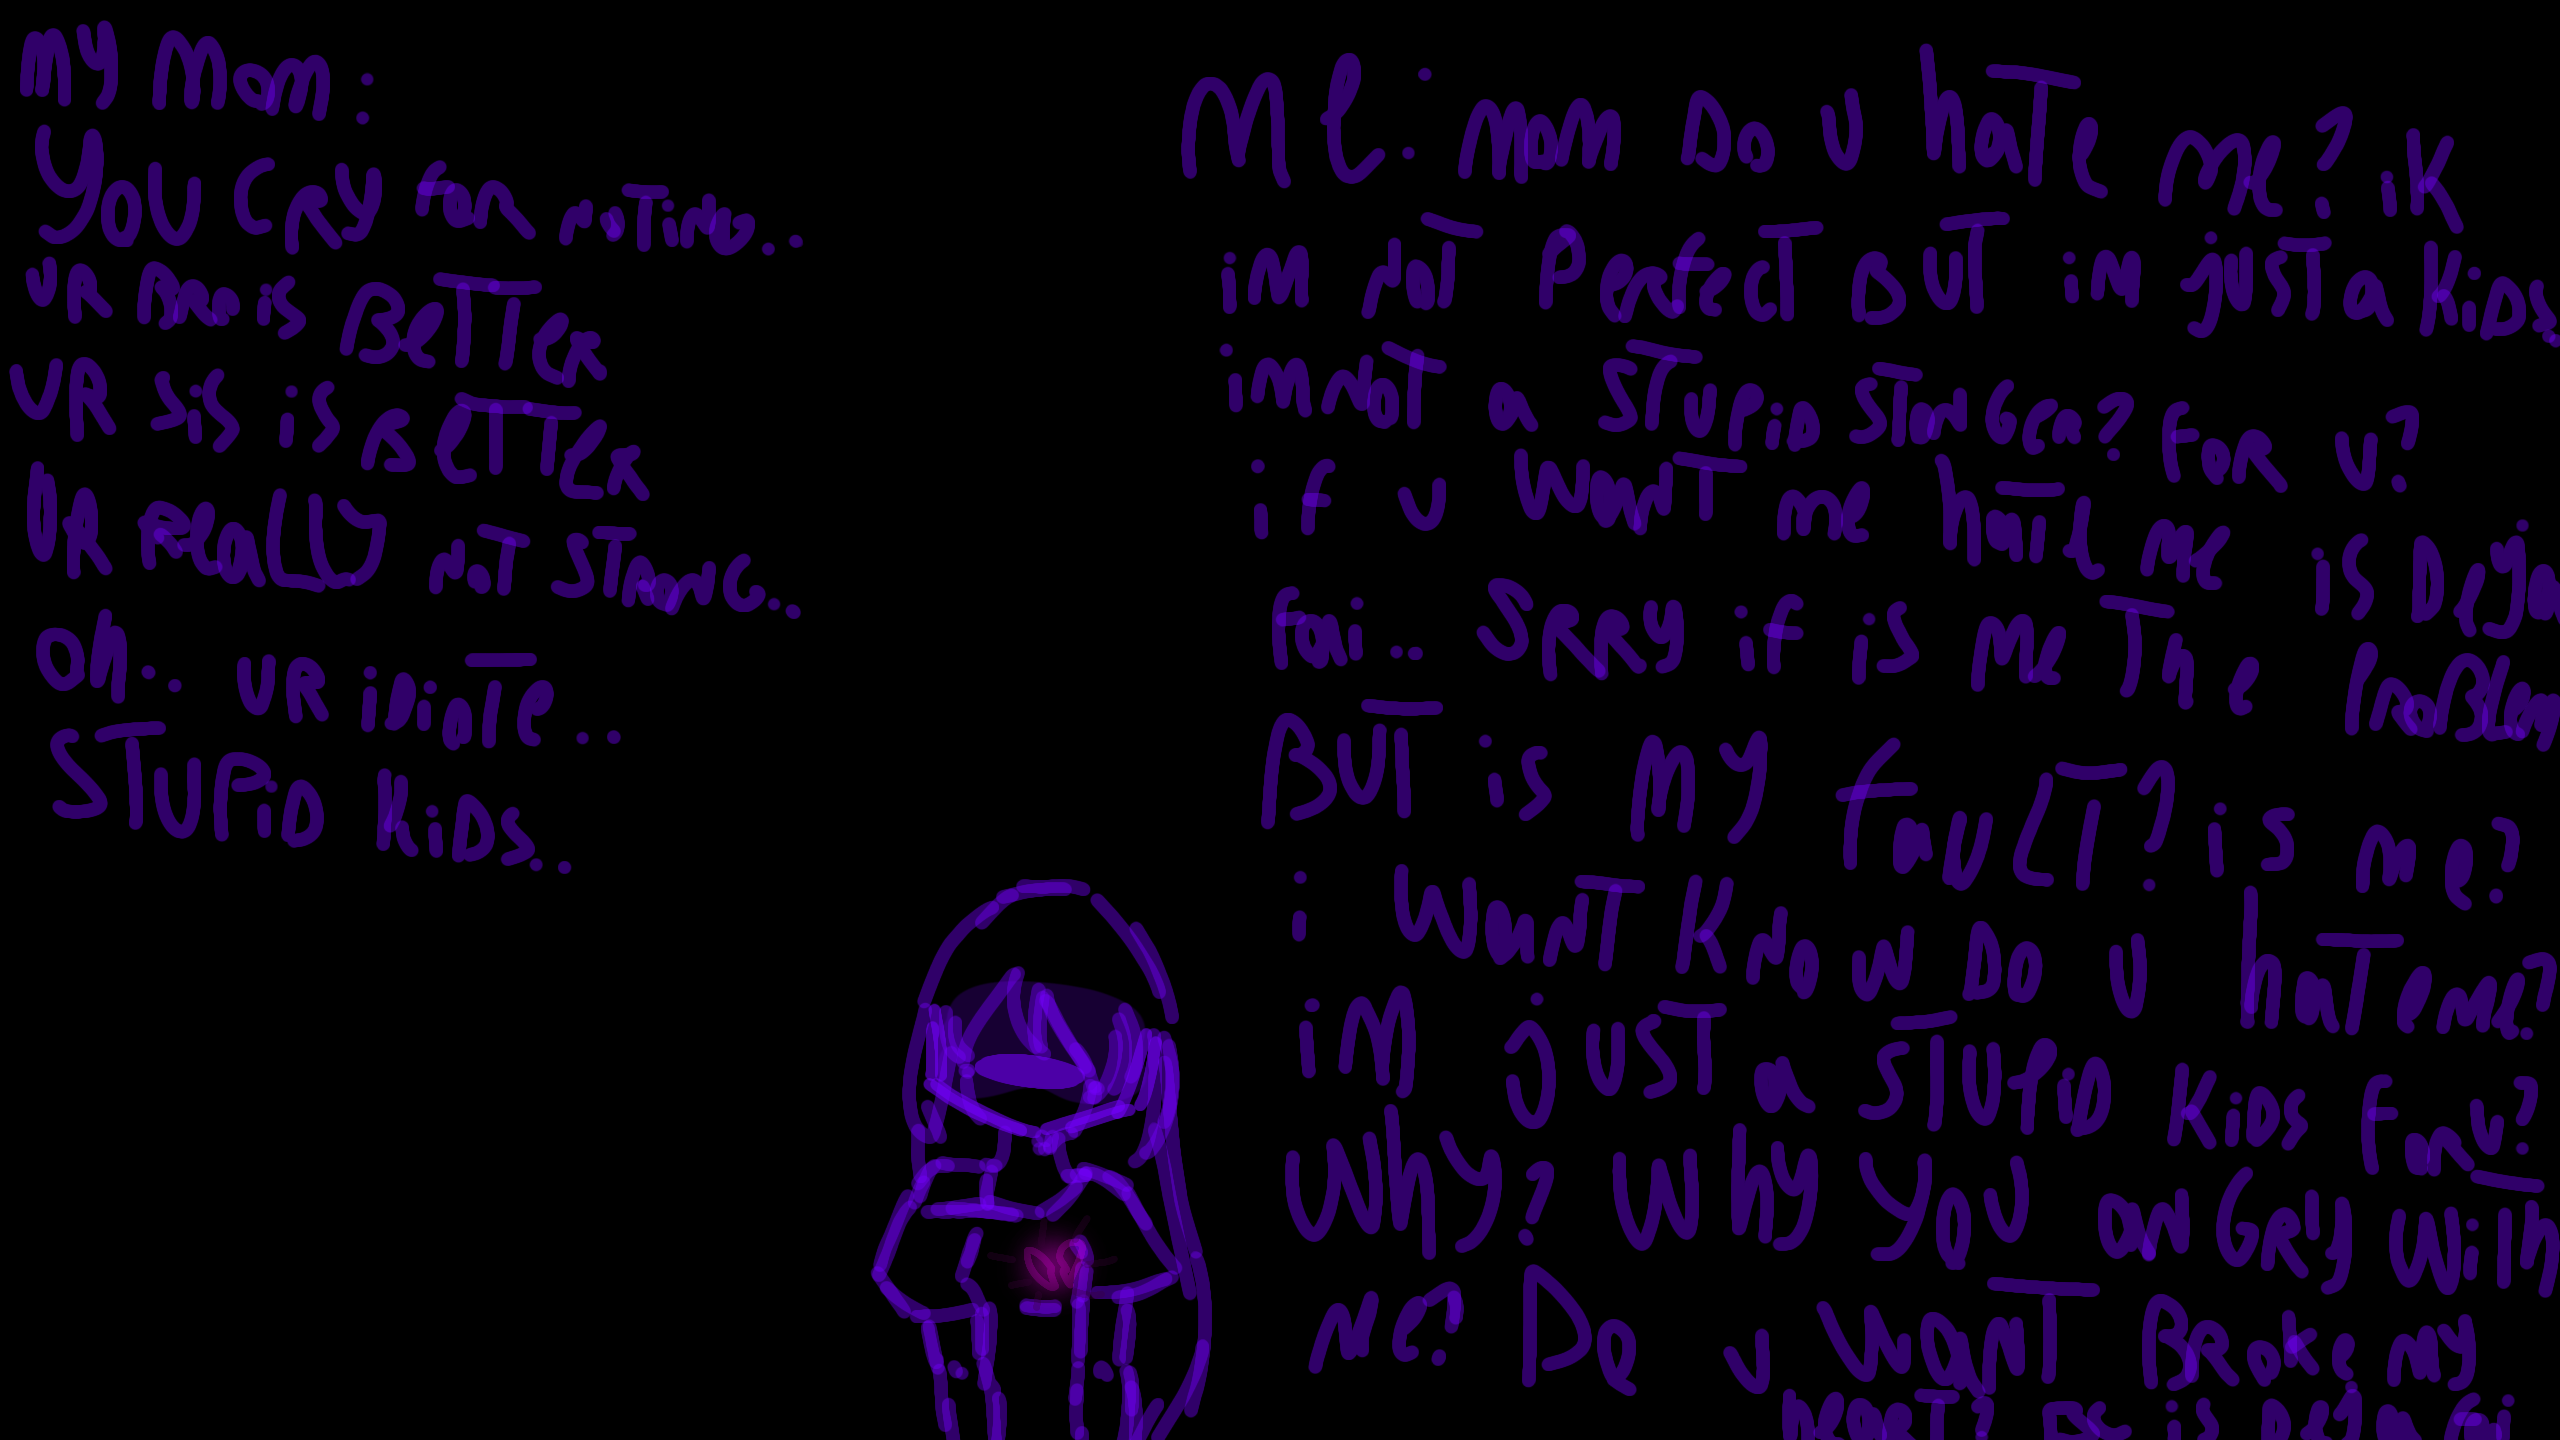 my mom :
YOU CRY FOR NOTING..
UR BRO is BETTER
UR Sis is BETTER
UR REALLY NOT STRONG..
Oh.. UR iDiATE..
STUPiD KiDS..
ME: MOM DO U hATE ME? iK
iM NOT PERFECT BUT iM jUST A KiDS..
iM NOT A STUPiD STANGER? FOR U?
if U WANT ME hAiT ME iS DEjA
FAi.. SRRY if iS ME ThE PROBLEM
BUT iS MY FAULT? iS ME?
i WANT KNOW DO U hATE ME?
iM jUST A STUPiD KiDS FOR U?
WhY? WhY YOU ANGRY WiTh
ME? DO U WANT BROKE MY
hEART? iS DEjA FAi